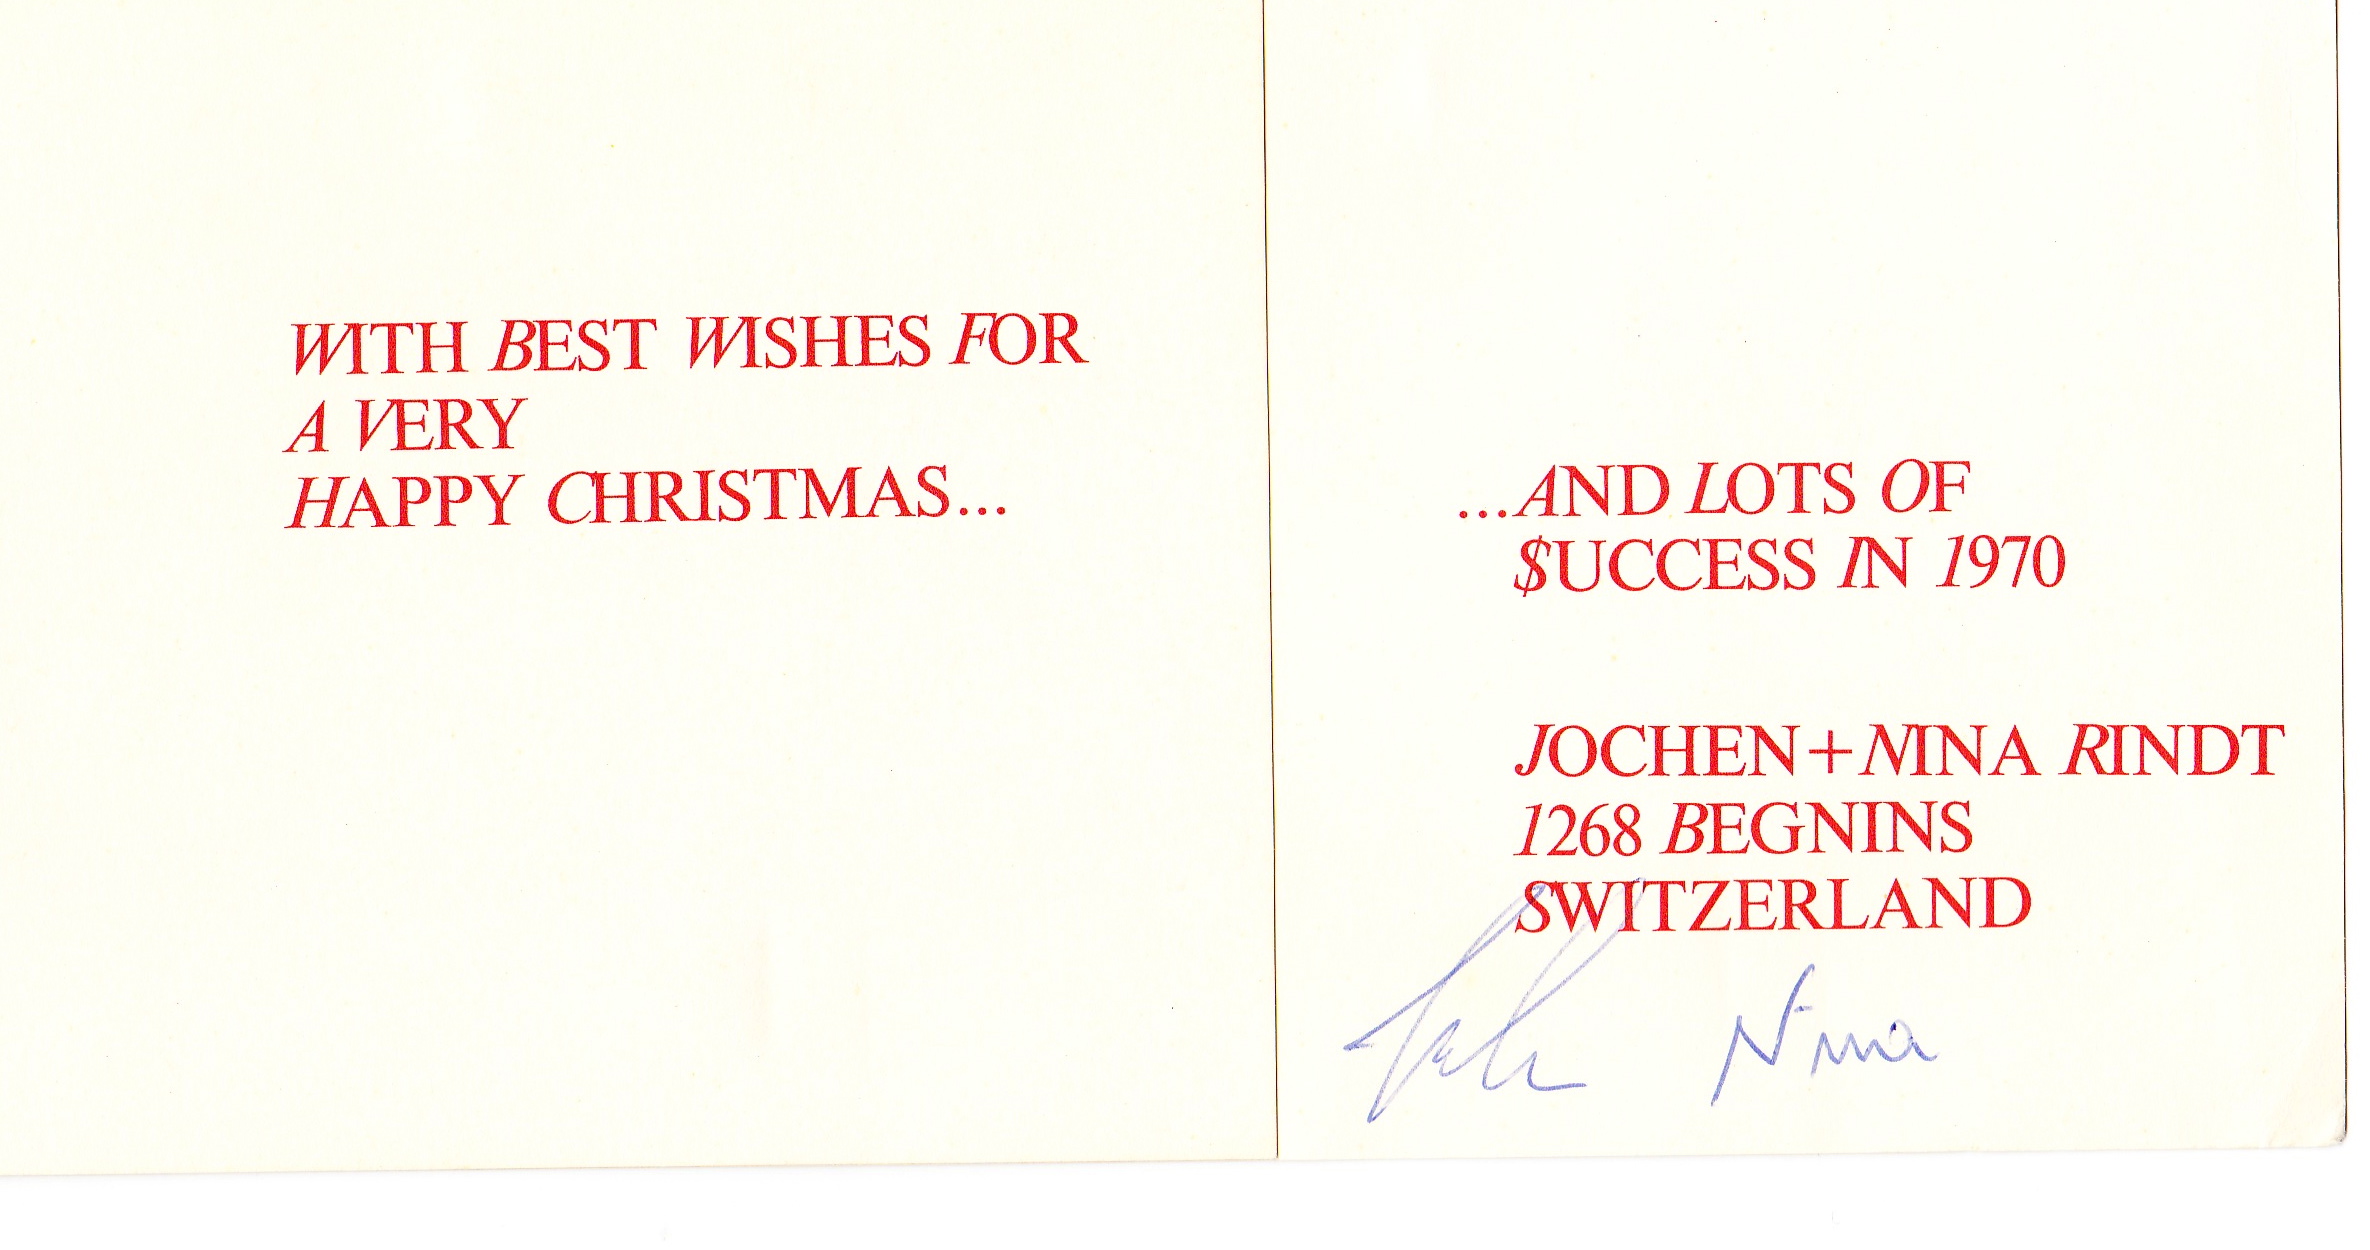 WITH BEST WISHES FOR
A VERY
HAPPY CHRISTMAS...
...AND LOTS OF
$UCCESS IN 1970
JOCHEN+NINA RINDT
1268 BEGNINS
SWITZERLAND
Nina